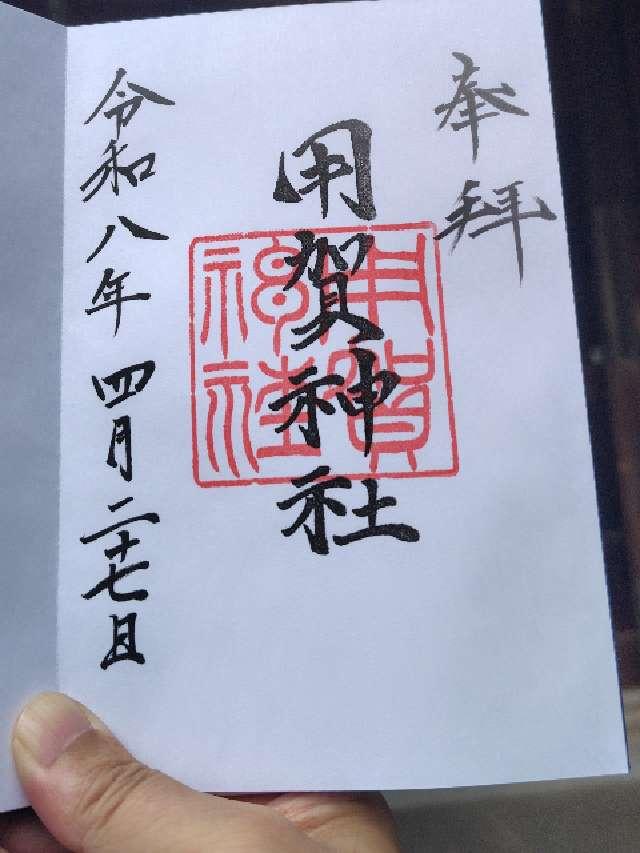 奉拝
用賀神社
用賀神社
令和八年 四月二十七日